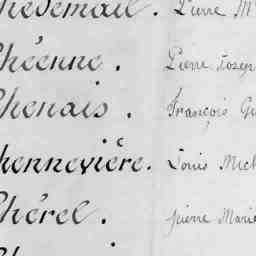 Chedemail. Pierre M
Chéenne. Pierre Josep
Chenais. François Gu
Chennevière. Louis Mich
Chérel. pierre Marie